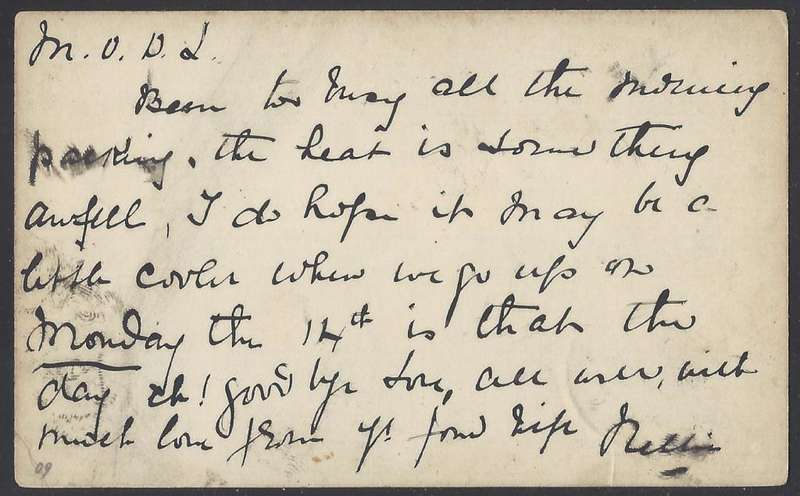 M. O. D. L.
Been to May all the morning
packing. the heat is something
awfull, I do hope it may be a
little cooler when we go up on
Monday the 14th is that the
day eh! good bye love, all well, with
much love from yr fond Nellie
09